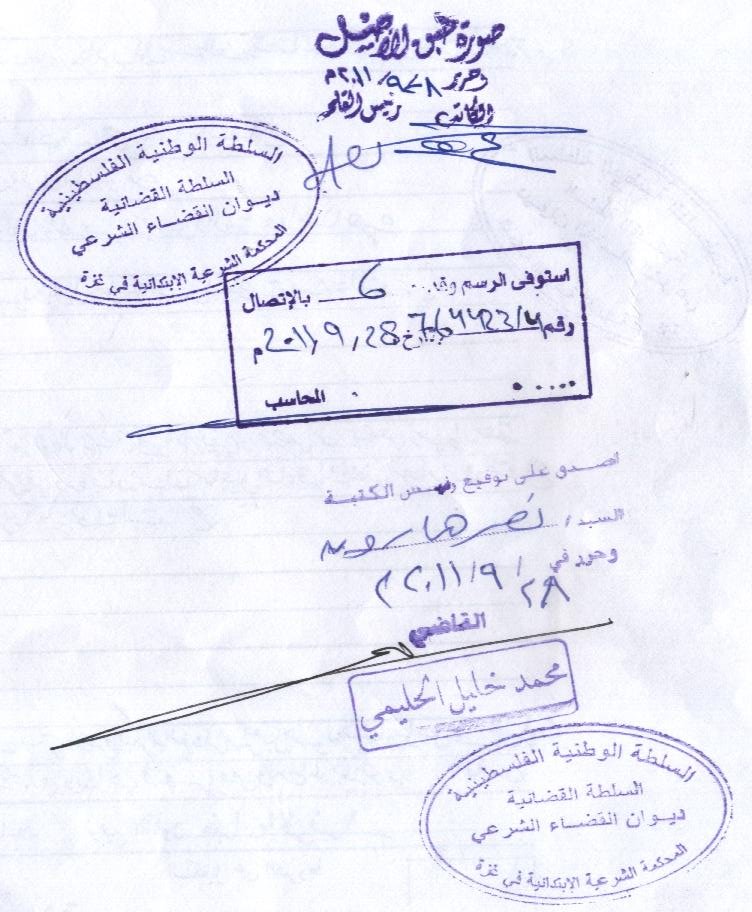 صورة طبق الاصل
وحرر ٢٨/٩/٢٠١١م
الكاتب رئيس القلم
السلطة الوطنية الفلسطينية
السلطة القضائية
ديوان القضاء الشرعي
المحكمة الشرعية الابتدائية في غزة
استوفى الرسم وقدره 6 بالإتصال
رقم بتاريخ 28/9/2011م
المحاسب
اصدق على توقيع رئيس الكتبة
السيد/ نصر هارون
وحرر في ٢٨/٩/٢٠١١م
القاضي
محمد خليل الحليمي
السلطة الوطنية الفلسطينية
السلطة القضائية
ديوان القضاء الشرعي
المحكمة الشرعية الابتدائية في غزة